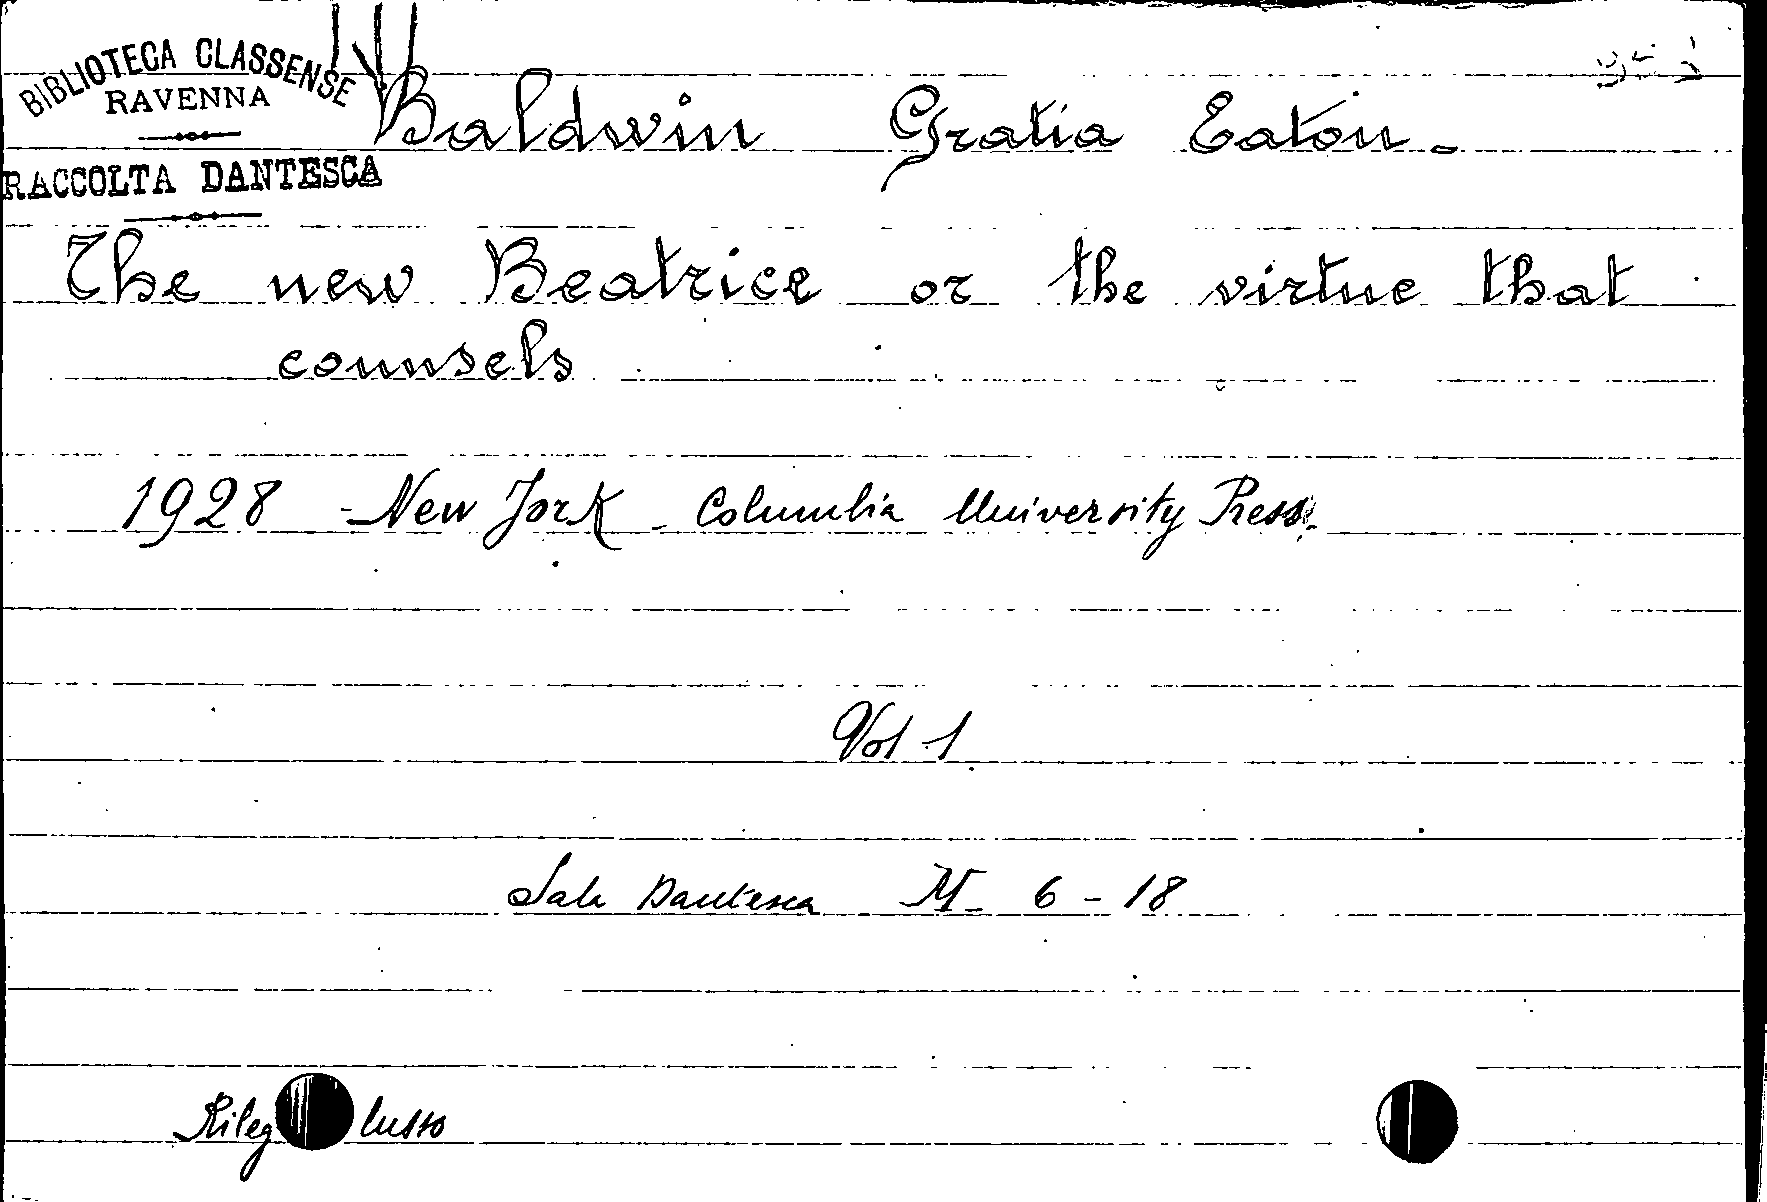 BIBLIOTECA CLASSENSE
RAVENNA
RACCOLTA DANTESCA
Baldwin Gratia Eaton.
The new Beatrice or the virtue that
counsels
1928 - New York - Columbia University Press.
Vol 1
Sala Dantesca M- 6 - 18
Rileg lusso